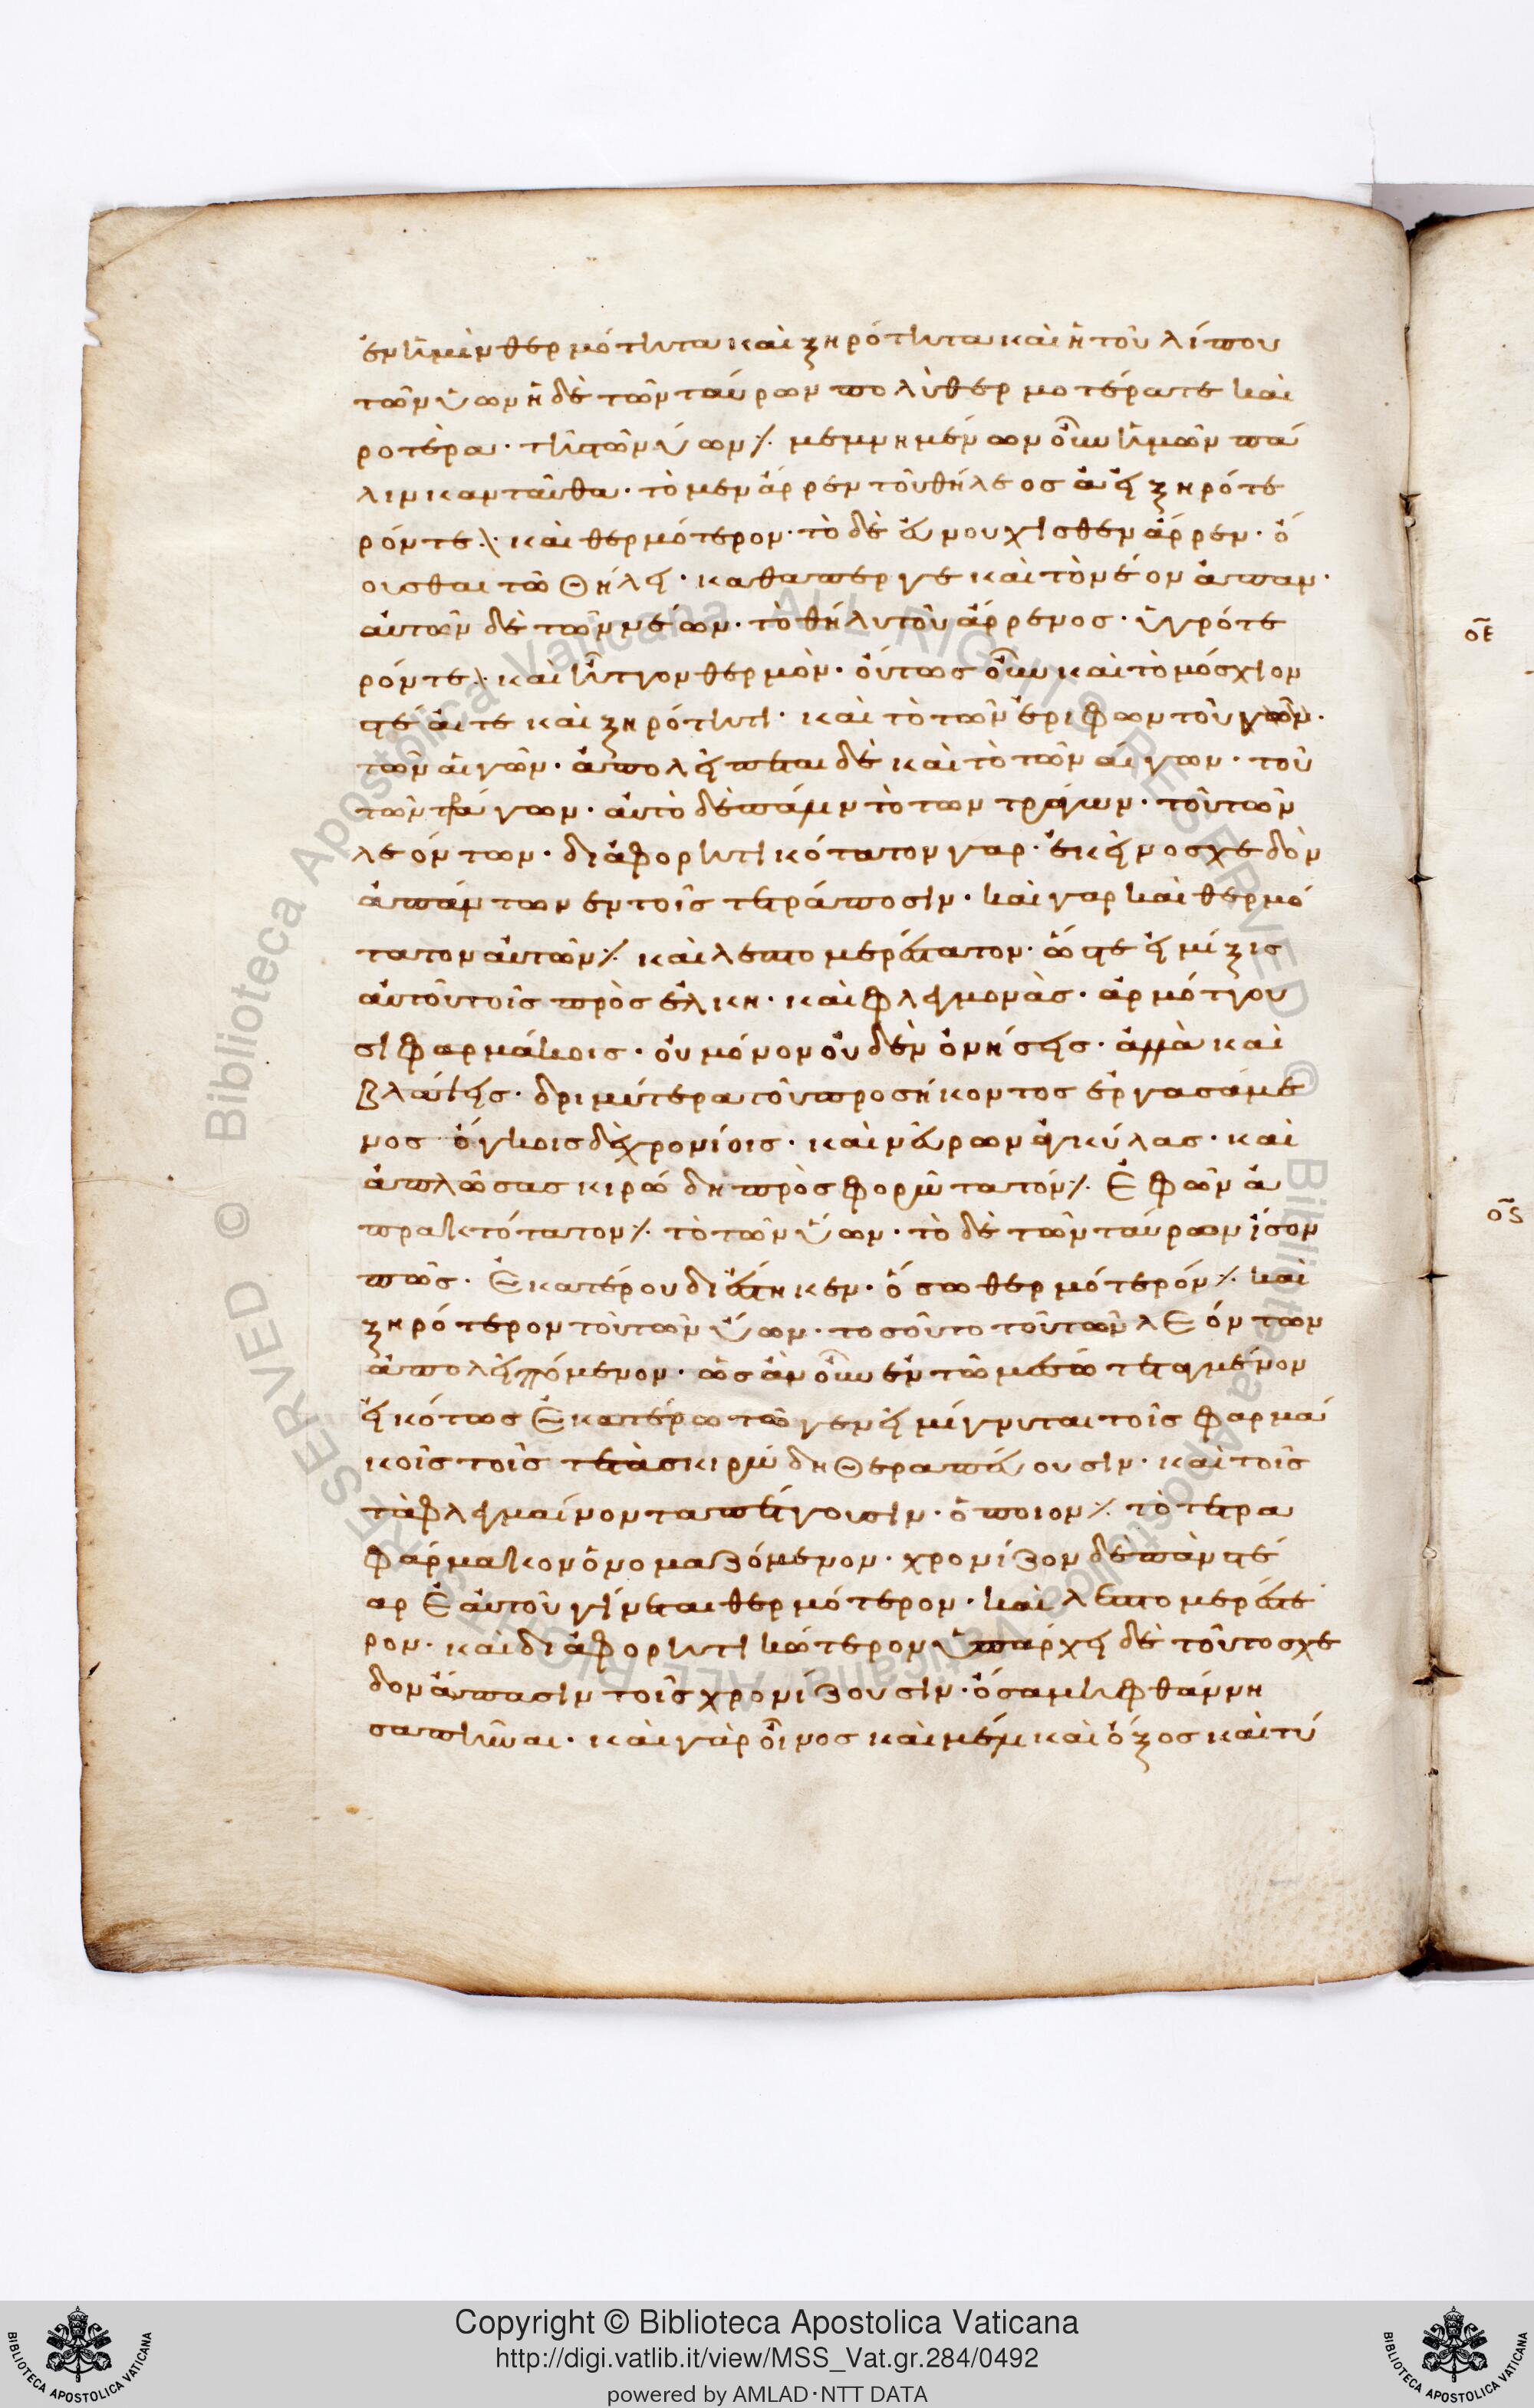 ἐν ἡμῖν θερμότητα καὶ ξηρότητα καὶ ἡ τοῦ λίπου
τῶν ὑῶν ἡ δὲ τῶν ταύρων πολὺ θερμοτέρα τε καὶ
ροτέρα · τῆς τῶν ὑῶν ⁒ μεμνημένων οὖν ἡμῶν πά
λιν κἀνταῦθα · τὸ μὲν ἄρρεν τοῦ θήλεος ἀεὶ ξηρότε
ρόν τε ⁒ καὶ θερμότερον · τὸ δὲ εὐνουχισθὲν ἄρρεν · ὁ
οιοῦσθαι τῶ θήλει · καθάπερ γε καὶ τὸ νέον ἅπαν ·
αὐτῶν δὲ τῶν νέων · τὸ θῆλυ τοῦ ἄρρενος · ὑγρότε
ρόν τε ⁒ καὶ ἧττον θερμὸν · οὕτως οὖν καὶ τὸ μόσχιον
στέατε καὶ ξηρότητι · καὶ τὸ τῶν ἐρίφων τοῦ γῶν ·
τῶν αἰγῶν · ἀπολείπεται δὲ καὶ τὸ τῶν αἰγῶν · τοῦ
τῶν τράγων · αὐτὸ δὲ πάλιν τὸ τῶν τράγων · τοῦ τῶν
λεόντων · διαφορητικότατον γὰρ · ἐκεῖνο σχεδὸν
ἁπάντων ἐν τοῖς τετράποσιν · καὶ γὰρ καὶ θερμό
τατον αὐτῶν ⁒ καὶ λεπτομερέστατον · ὥστε εἰ μίξις
αὐτοῦ τοῖς πρὸς ἕλκη · καὶ φλεγμονὰς · ἁρμόττου
σι φαρμάκοις · οὐ μόνον οὐδὲν ὀνήσεις · ἀλλὰ καὶ
βλάψεις · δριμύτερα τοῦ προσήκοντος ἐργασάμε
νος ὄγκοις δὲ χρονίοις · καὶ νεύρων ἀγκύλας · καὶ
ἁπλῶς ἃς κιρώδη προσφορώτατόν ⁒ Ἐφ ὧν ἀ
πρακτότατον ⁒ τὸ τῶν ὑῶν · τὸ δὲ τῶν ταύρων ἴσον
πῶς · Ἑκατέρου διέστηκεν · ὅσω θερμότερόν ⁒ καὶ
ξηρότερον τοῦ τῶν ὑῶν · τοσοῦτο τοῦ τῶν λεόντων
ἀπολειπόμενον · ὡς ἂν οὖν ἐν τῶ μέσω τεταγμένον
εἰκότως ἑκατέρω τῶ γένει μίγνυται τοῖς φαρμά
κοις τοῖς τε τὰ σκιρώδη θεραπεύουσιν · καὶ τοῖς
τὰ φλεγμαίνοντα πέττουσιν · ὁποῖον ⁒ τὸ τετρα
φάρμακον ὀνομαζόμενον · χρονίζον δὲ πᾶν στέ
αρ ἑαυτοῦ γίνεται θερμότερον · καὶ λεπτομερέστε
ρον · καὶ διαφορητικώτερον ὑπάρχει δὲ τοῦτο σχε
δὸν ἅπασιν τοῖς χρονίζουσιν · ὅσα μὴ φθάννη
σαπῆναι · καὶ γὰρ οἶνος καὶ μέλι καὶ ὄξος καὶ τύ
οε
ος
Copyright © Biblioteca Apostolica Vaticana
http://digi.vatlib.it/view/MSS_Vat.gr.284/0492
powered by AMLAD·NTT DATA